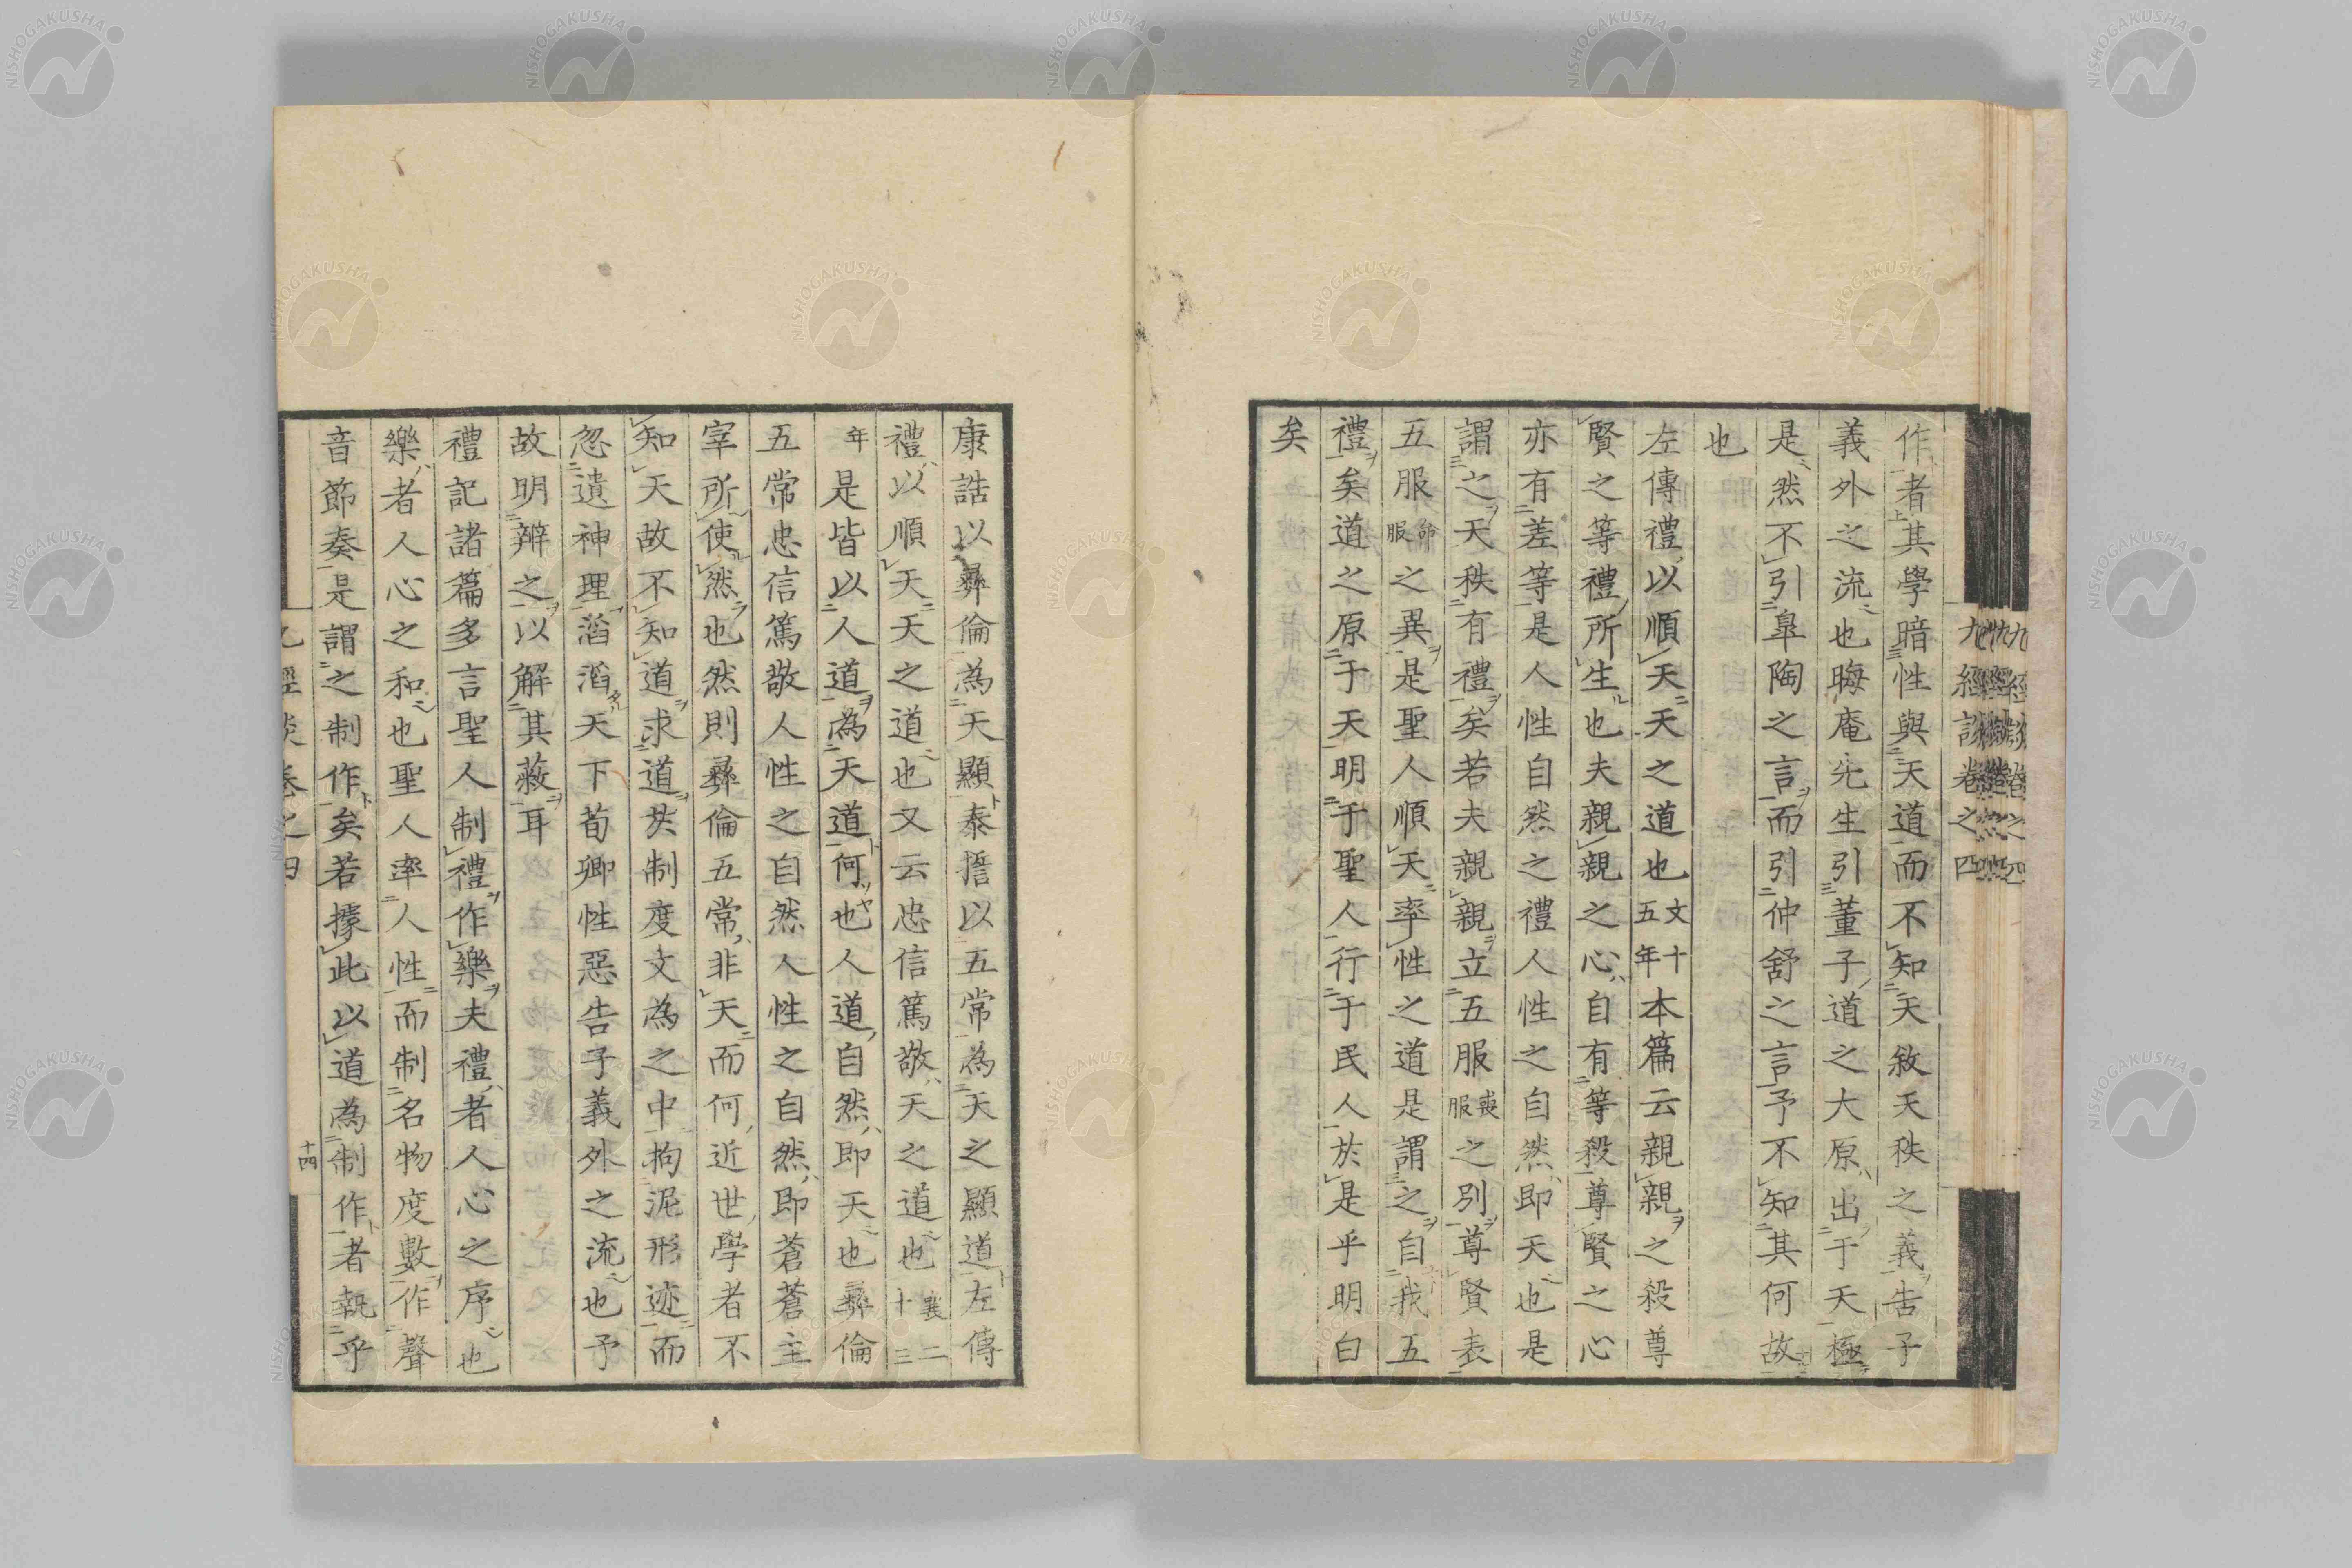 九經談卷之四
作者其學暗性與天道而不知天敘天秩之義告子
義外之流也晦庵先生引董子道之大原出于天極
是然不引皐陶之言而引仲舒之言予不知其何故
也
左傳禮以順天天之道也文十五年本篇云親親之殺尊
賢之等禮所生也夫親親之心自有等殺尊賢之心
亦有差等是人性自然之禮人性之自然即天也是
謂之天秩有禮矣若夫親親立五服喪服之別尊賢表
五服命服之異是聖人順天率性之道是謂之自我五
禮矣道之原于天明于聖人行于民人於是乎明白
矣
康誥以彝倫為天顯泰誓以五常為天之顯道左傳
禮以順天天之道也又云忠信篤敬天之道也襄二十三
年是皆以人道為天道何也人道自然即天也彝倫
五常忠信篤敬人性之自然人性之自然即蒼蒼主
宰所使然也然則彝倫五常非天而何近世學者不
知天故不知道求道於制度文為之中拘泥形迹而
忽遺神理滔滔天下荀卿性惡告子義外之流也予
故明辨之以解其蔽耳
禮記諸篇多言聖人制禮作樂夫禮者人心之序也
樂者人心之和也聖人率人性而制名物度數作聲
音節奏是謂之制作矣若據此以道為制作者執乎
十四
NISHOGAKUSHA